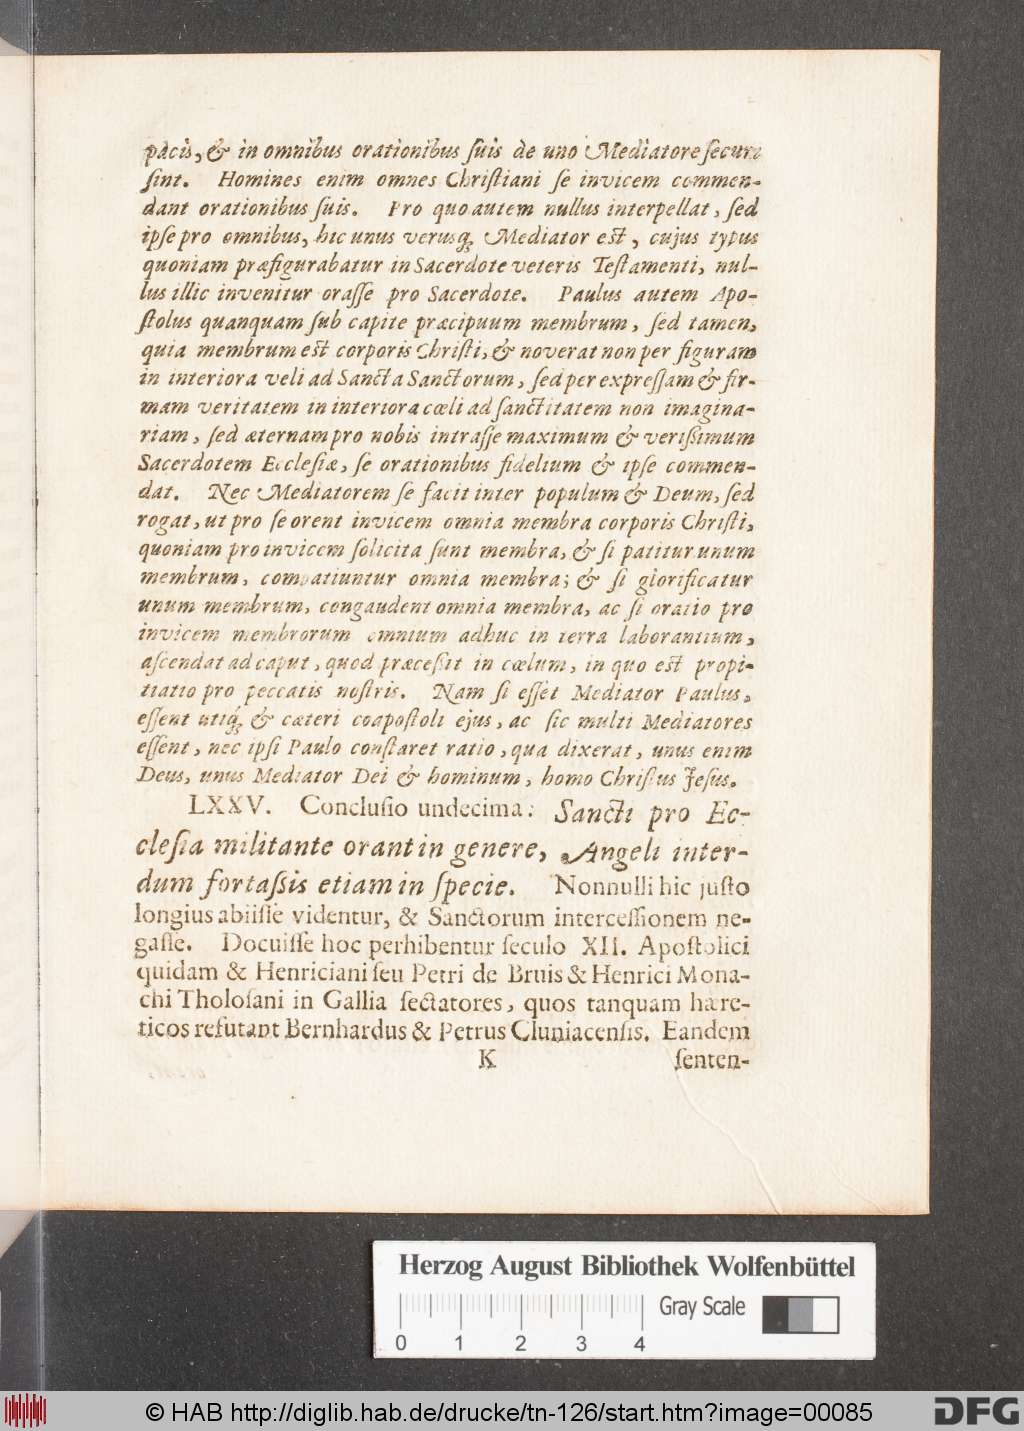 pacis, & in omnibus orationibus ſuis de uno Mediatore ſecuri
ſint. Homines enim omnes Chriſtiani ſe invicem commen-
dant orationibus ſuis. Pro quo autem nullus interpellat, ſed
ipſe pro omnibus, hic unus verusq́; Mediator eſt, cujus typus
quoniam præfigurabatur in Sacerdote veteris Teſtamenti, nul-
lus illic invenitur oraſſe pro Sacerdote. Paulus autem Apo-
ſtolus quanquam ſub capite præcipuum membrum, ſed tamen,
quia membrum eſt corporis Chriſti, & noverat non per figuram
in interiora veli ad Sancta Sanctorum, ſed per expreſſam & fir-
mam veritatem in interiora cœli ad ſanctitatem non imagina-
riam, ſed æternam pro nobis intraſſe maximum & veriſsimum
Sacerdotem Eccleſiæ, ſe orationibus fidelium & ipſe commen-
dat. Nec Mediatorem ſe facit inter populum & Deum, ſed
rogat, ut pro ſe orent invicem omnia membra corporis Chriſti,
quoniam pro invicem ſolicita ſunt membra, & ſi patitur unum
membrum, compatiuntur omnia membra; & ſi glorificatur
unum membrum, congaudent omnia membra, ac ſi oratio pro
invicem membrorum omnium adhuc in terra laborantium,
aſcendat ad caput, quod præceſsit in cœlum, in quo eſt propi-
tiatio pro peccatis noſtris. Nam ſi eſſet Mediator Paulus,
eſſent utiq́; & cæteri coapoſtoli ejus, ac ſic multi Mediatores
eſſent, nec ipſi Paulo conſtaret ratio, qua dixerat, unus enim
Deus, unus Mediator Dei & hominum, homo Chriſtus Jeſus.
LXXV. Concluſio undecima: Sancti pro Ec-
cleſia militante orant in genere, Angeli inter-
dum fortaſsis etiam in ſpecie. Nonnulli hic juſto
longius abiiſſe videntur, & Sanctorum interceſſionem ne-
gaſſe. Docuiſſe hoc perhibentur ſeculo XII. Apoſtolici
quidam & Henriciani ſeu Petri de Bruis & Henrici Mona-
chi Tholoſani in Gallia ſectatores, quos tanquam hære-
ticos refutant Bernhardus & Petrus Cluniacenſis. Eandem
K ſenten-
Herzog August Bibliothek Wolfenbüttel
Gray Scale
0 1 2 3 4
© HAB http://diglib.hab.de/drucke/tn-126/start.htm?image=00085
DFG